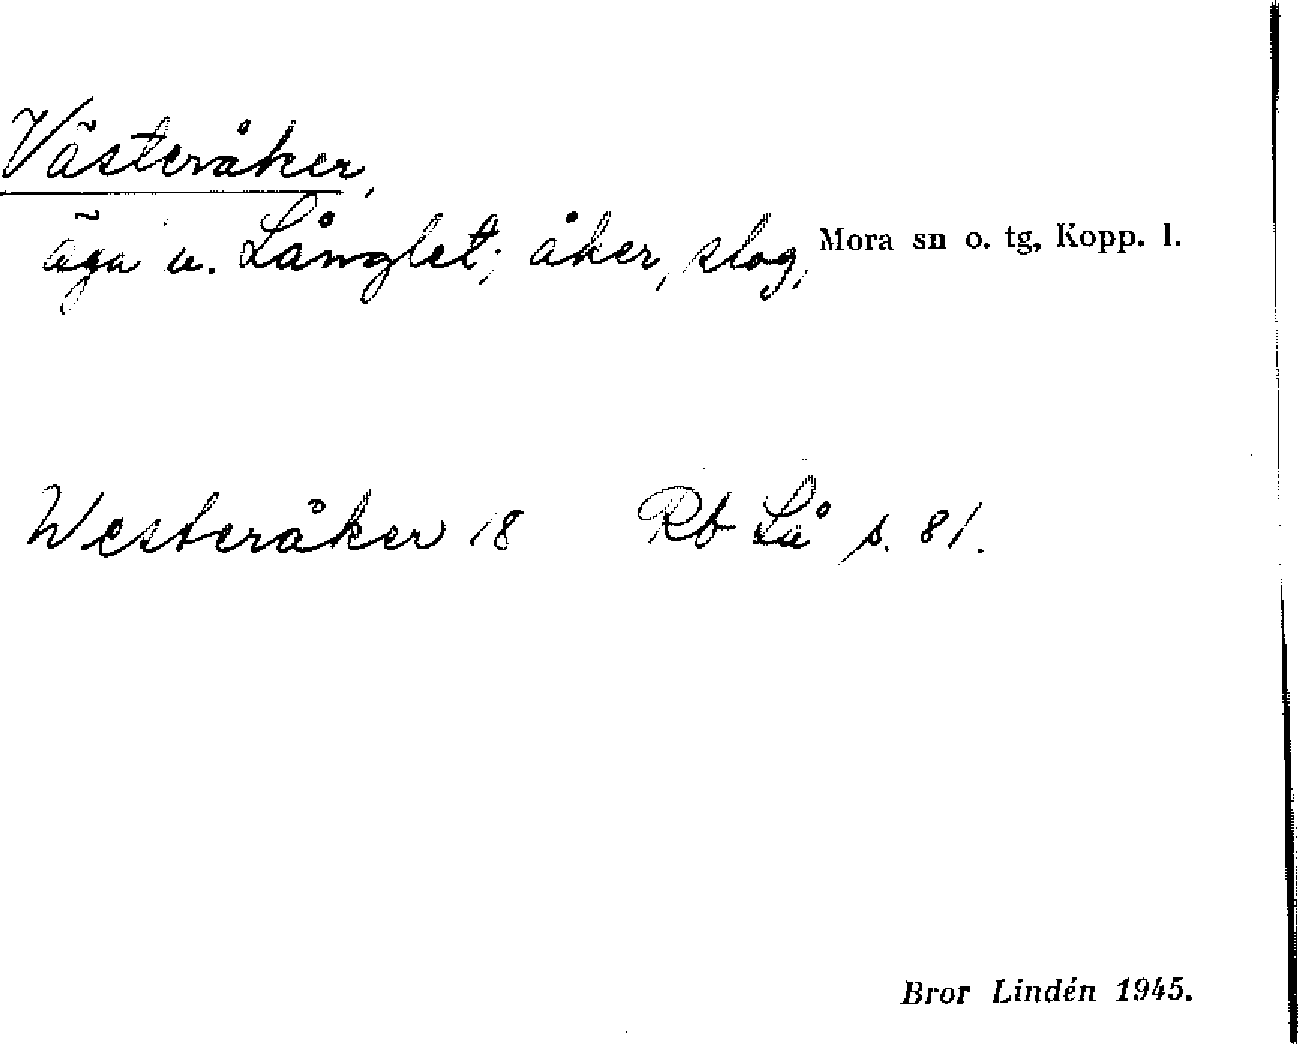 Västeråker,
äga u. Långlet; åker, slog, Mora sn o. tg, Kopp. l.
Westeråker 18 Rb Lå s. 81.
Bror Lindén 1945.